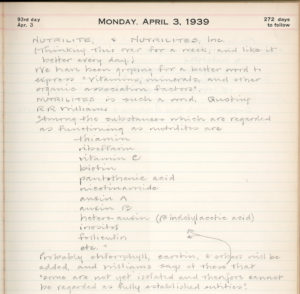 93rd day
Apr. 3
MONDAY, APRIL 3, 1939
272 days
to follow
NUTRILITE, & NUTRILITES, Inc.
(Thinking this over for a week, and like it
better every day)
We had been groping for a better word to
express "Vitamins, minerals, and other
organic association factors".
NUTRILITES is such a word. Quoting
R R Williams
"Among the substances which are regarded
as functioning as nutrilites are
thiamin
riboflavin
vitamin C
biotin
pantothenic acid
nicotinamide
auxin A
auxin B
hetero auxin (B indolylacetic acid)
inositol
folliculin
etc. "
Probably chlorophyll, carotin, & others will be
added, and Williams says of these that
"some are not yet isolated and therefore cannot
be regarded as fully established entities".